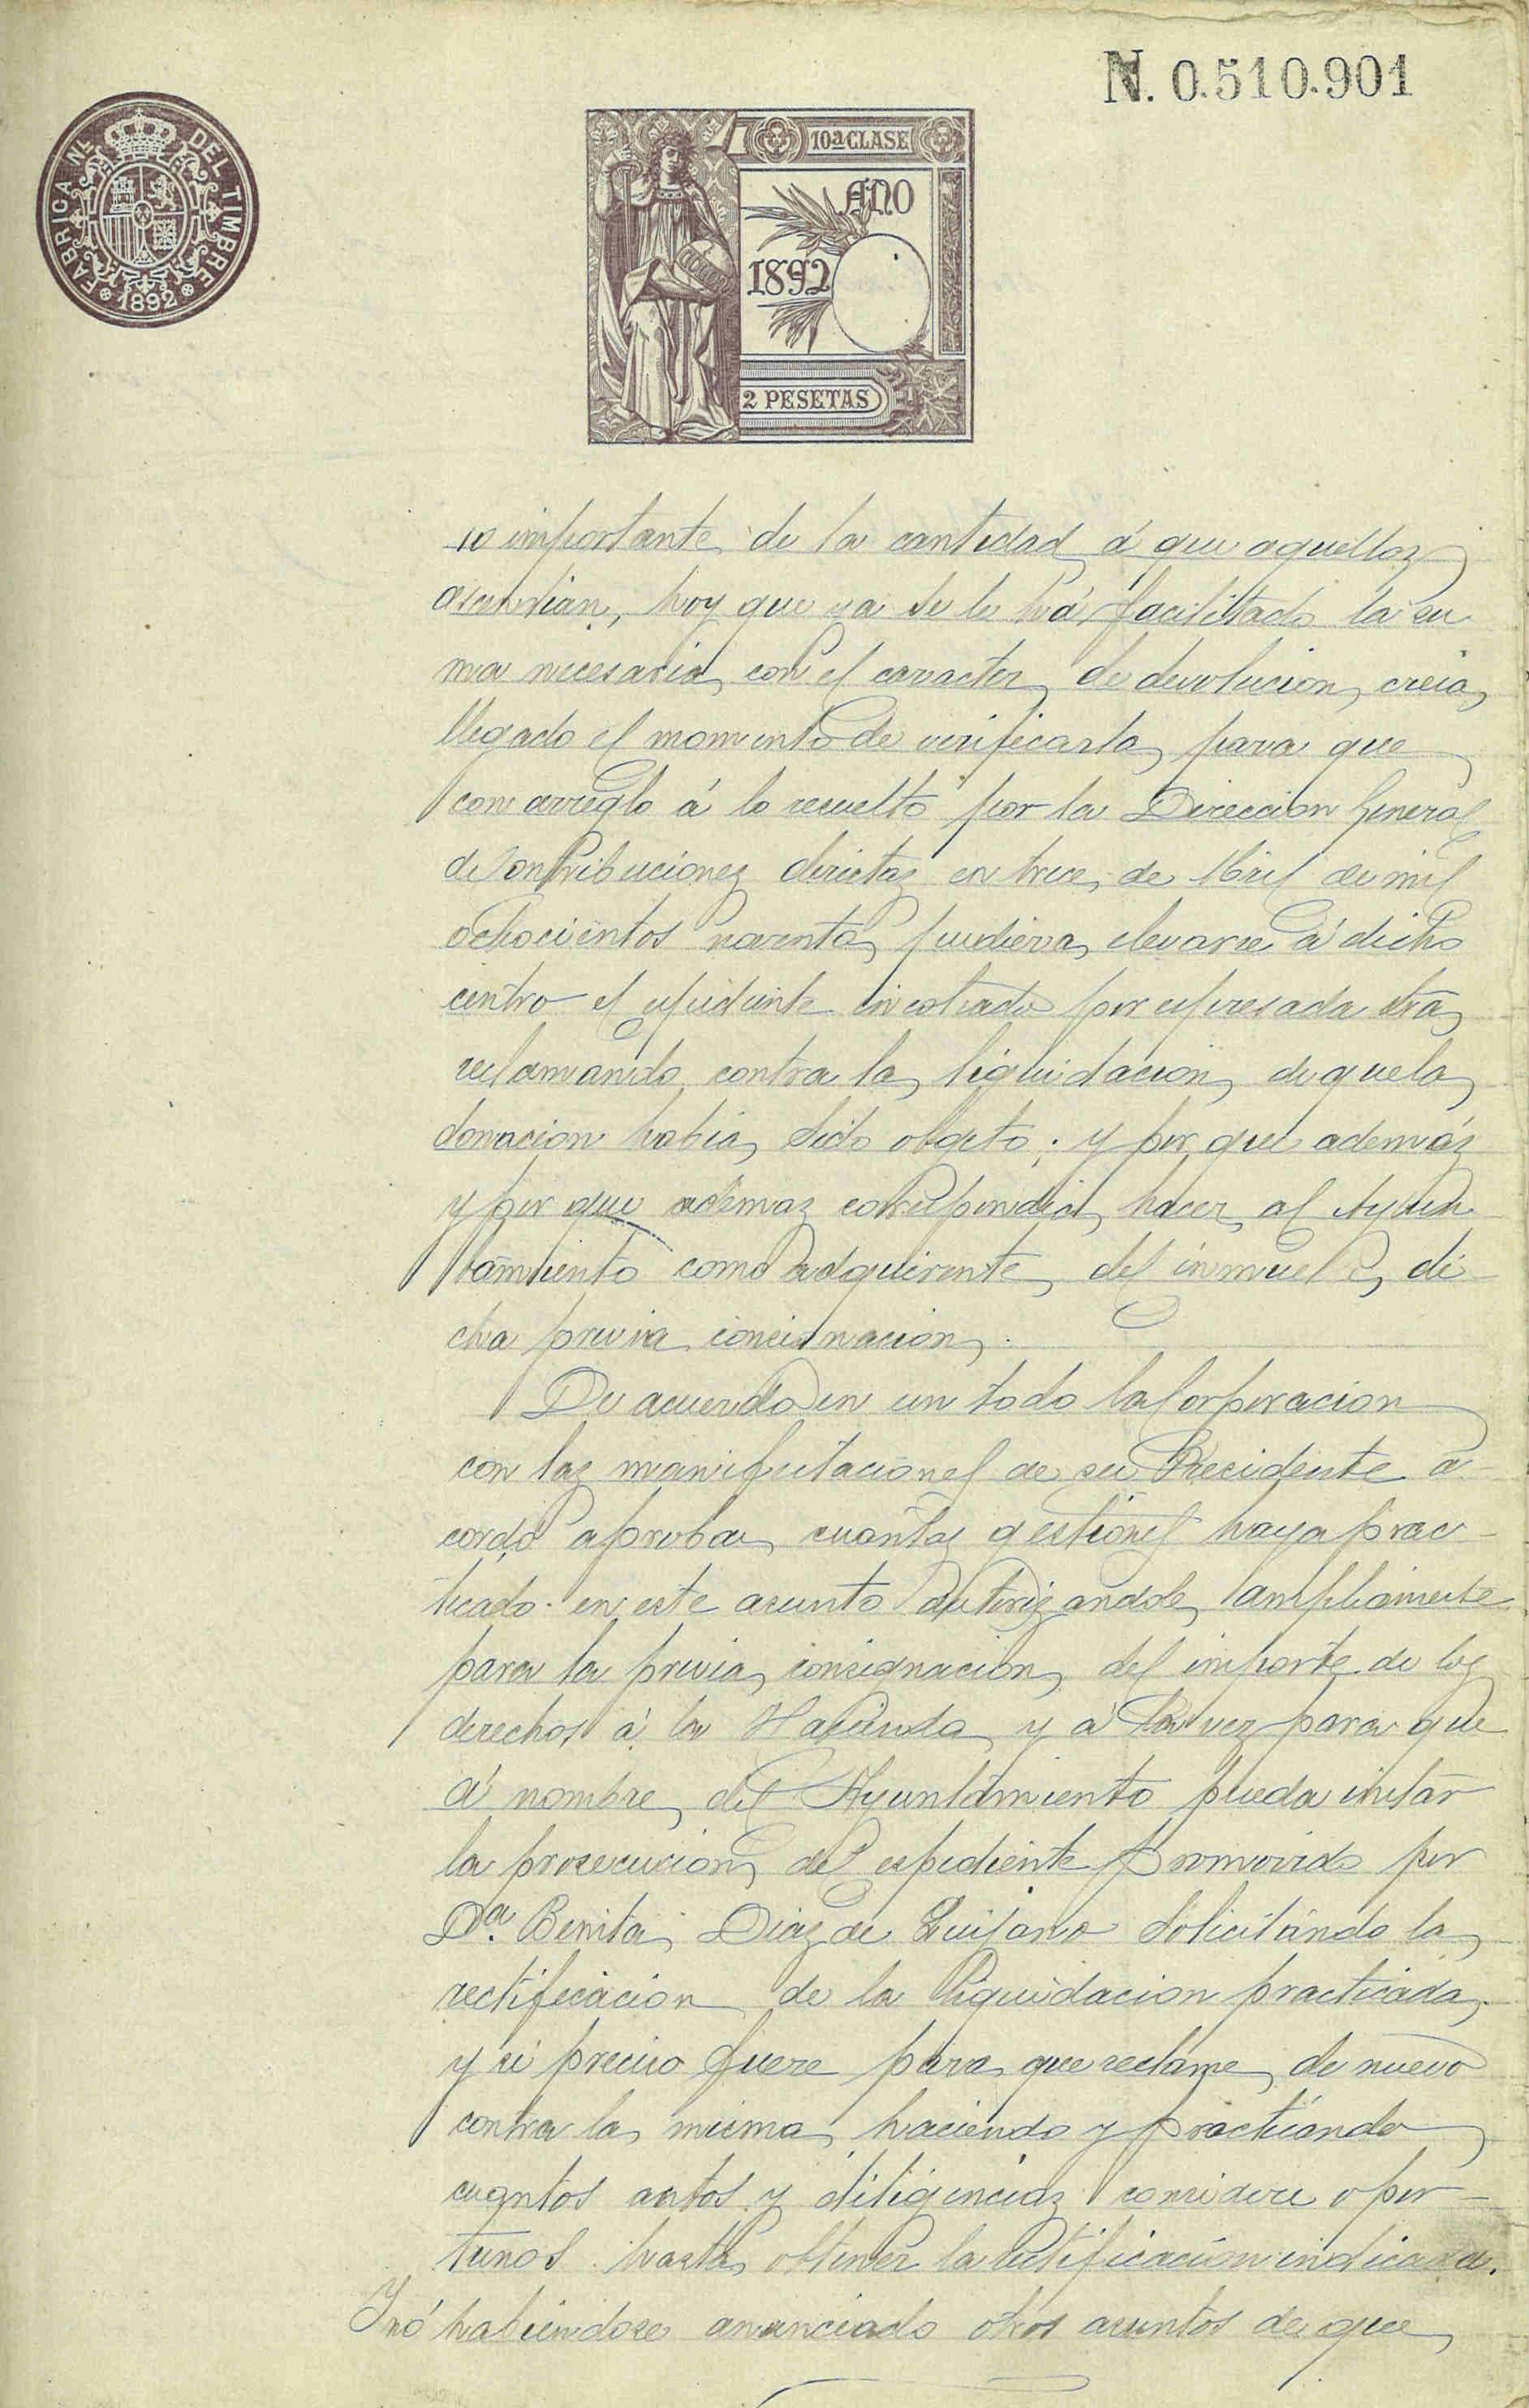 N. 0.510.901
FABRICA NL DEL TIMBRE
1892
10ª CLASE
AÑO
1892
2 PESETAS
io importante de la cantidad á que aquellos
ascendian, hoy que ya se le há facilitado la su
ma necesaria con el caracter de devolucion, creia
llegado el momento de verificarla para que
con arreglo á lo resuelto por la Direccion General
de Contribuciones directas en trece de Abril de mil
ochocientos noventa pudiera elevarse á dicho
centro el espediente incohado por espresada Sra
reclamando contra la liquidacion de que la
donacion habia sido objeto; y por que además
y por que ademas correspondia hacer al Ayun
tamiento como adquirente del inmueble, di
cha previa consignacion.
De acuerdo en un todo la Corporacion
con las manifestaciones de su Presidente a
cordó aprobar cuantas gestiones haya prac-
ticado en este asunto autorizandole ampliamente
para la previa consignacion del importe de los
derechos á la Hacienda y á la vez para que
á nombre del Ayuntamiento pueda instar
la prosecucion del espediente promovido por
Dª. Benita Diaz de Quijano solicitando la
rectificacion de la liquidacion practicada,
y si preciso fuere para que reclame de nuevo
contra la misma haciendo y practicando
cuantos actos y diligencias considere opor-
tunos hasta obtener la rectificacion indicada.
Y nó habiendose anunciado otros asuntos de que